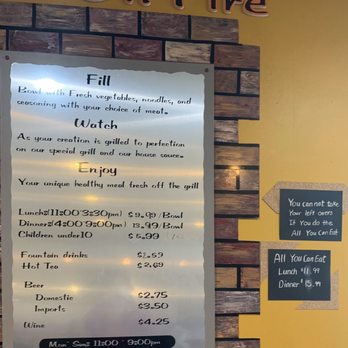 Fire
Fill
Bowl with Fresh vegetables, noodles, and
seasoning with your choice of meat.
Watch
As your creation is grilled to perfection
on our special grill and our house sauce.
Enjoy
Your unique healthy meal fresh off the grill
Lunch:(11:00~3:30pm) $9.99/Bowl
Dinner:(4:00~9:00pm) 13.99/Bowl
Children under 10 $5.99
Fountain drinks
Hot Tea
Beer
Domestic $2.75
Imports $3.50
Wine $4.25
Mon~Sun: 11:00 ~ 9:00pm
You can not take
Your left overs
If You do the
All You Can Eat
All You Can Eat
Lunch $11.99
Dinner $15.99